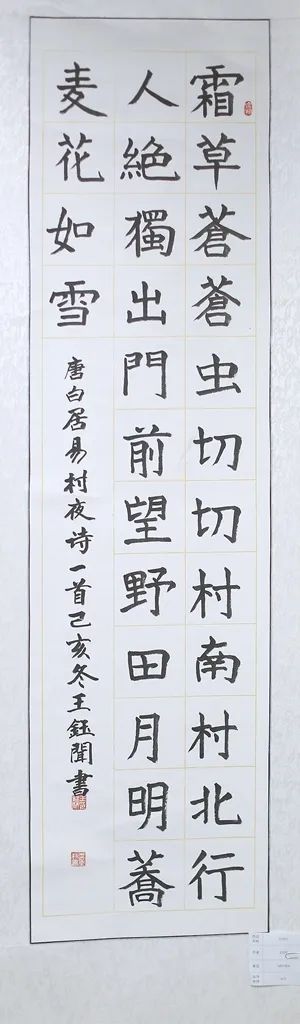 霜草蒼蒼虫切切村南村北行
人絶獨出門前望野田月明蕎
麦花如雪
唐白居易村夜诗一首己亥冬王鈺聞書